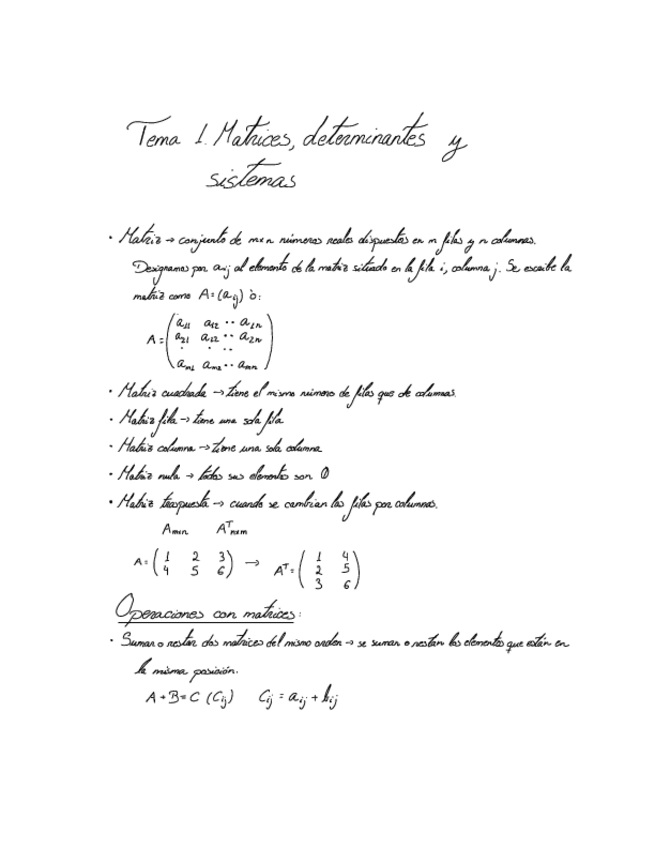 Tema 1. Matrices, determinantes y
sistemas
· Matriz → conjunto de mxn números reales dispuestos en m filas y n columnas.
Designamos por aij al elemento de la matriz situado en la fila i, columna j. Se escribe la
matriz como A=(aij) ò:
a11 a12 ·· a1n
A= a21 a12 ·· a2n
· · ··
am1 am2 ·· amn
· Matriz cuadrada → tiene el mismo número de filas que de columnas.
· Matriz fila → tiene una sola fila
· Matriz columna → tiene una sola columna
· Matriz nula → todos sus elementos son 0
· Matriz traspuesta → cuando se cambian las filas por columnas.
Amxn A^T nxm
A= (1 2 3 → A^T= (1 4
4 5 6) 2 5
3 6)
Operaciones con matrices:
· Sumar o restar dos matrices del mismo orden → se suman o restan los elementos que están en
la misma posición.
A+B=C (Cij) Cij = aij + bij